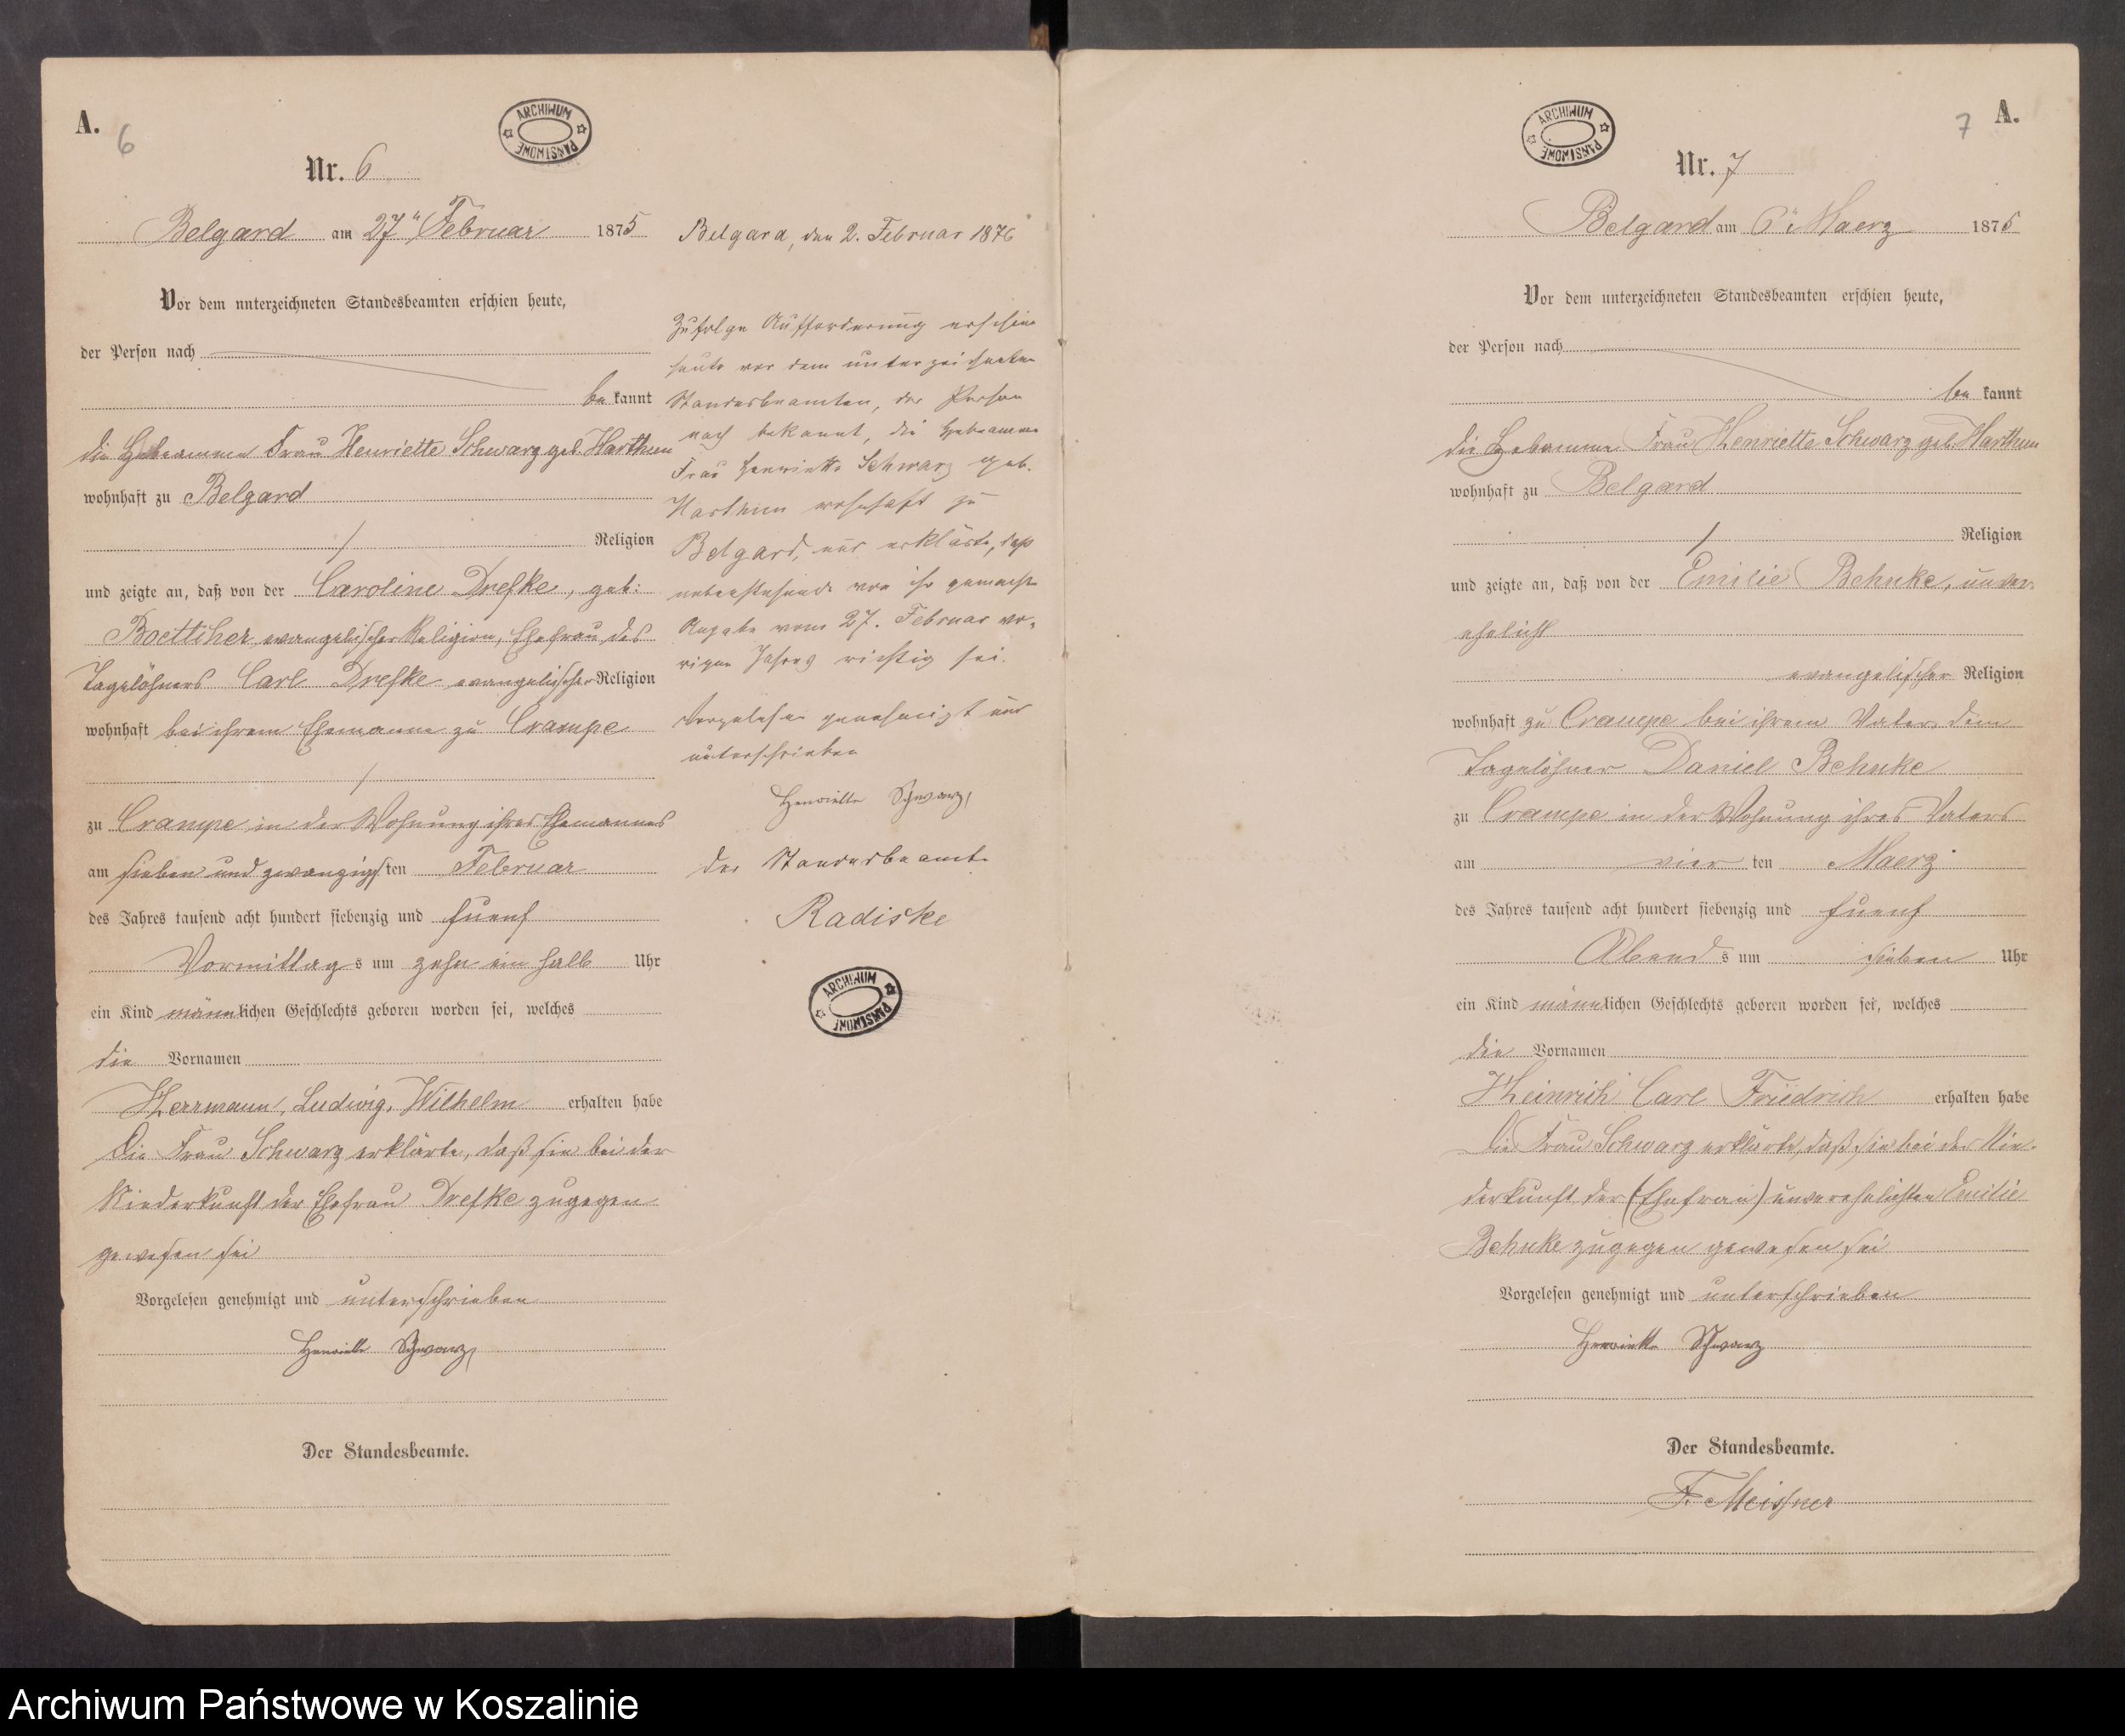 A.
6
ARCHIWUM PAŃSTWOWE
Nr. 6
Belgard am 27ten Februar 1875
Vor dem unterzeichneten Standesbeamten erschien heute,
der Person nach
be kannt
die Hebeamme Frau Henriette Schwarz geb. Harthun
wohnhaft zu Belgard
/ Religion
und zeigte an, daß von der Caroline Drefke, geb:
Boettcher evangelischer Religion, Ehefrau des
Tagelöhners Carl Drefke evangelischer Religion
wohnhaft bei ihrem Ehemanne zu Crampe
/
zu Crampe in der Wohnung ihres Ehemannes
am sieben und zwanzigsten Februar
des Jahres tausend acht hundert siebenzig und fuenf
Vormittags um zehn ein halb Uhr
ein Kind männlichen Geschlechts geboren worden sei, welches
die Vornamen
Herrmann, Ludwig, Wilhelm erhalten habe
Die Frau Schwarz erklärte, daß sie bei der
Niederkunft der Ehefrau Drefke zugegen
gewesen sei
Vorgelesen genehmigt und unterschrieben
Henriette Schwarz
Der Standesbeamte.
Belgard, den 2. Februar 1876
Zufolge Aufforderung erschien
heute vor dem unterzeichneten
Standesbeamten, der Person
nach bekannt, die Hebeamme
Frau Henriette Schwarz geb.
Harthun wohnhaft zu
Belgard, und erklärte, daß
nebenstehende von ihr gemachte
Angabe vom 27. Februar vo-
rigen Jahres richtig sei.
Vorgelesen genehmigt und
unterschrieben
Henriette Schwarz
Der Standesbeamte
Radiske
ARCHIWUM PAŃSTWOWE
ARCHIWUM PAŃSTWOWE
7
A.
Nr. 7
Belgard am 6ten Maerz 1875
Vor dem unterzeichneten Standesbeamten erschien heute,
der Person nach
be kannt
die Hebamme Frau Henriette Schwarz geb. Harthun
wohnhaft zu Belgard
/ Religion
und zeigte an, daß von der Emilie Behnke, unver-
ehelicht
evangelischer Religion
wohnhaft zu Crampe bei ihrem Vater dem
Tagelöhner Daniel Behnke
zu Crampe in der Wohnung ihres Vaters
am vier ten Maerz
des Jahres tausend acht hundert siebenzig und fuenf
Abends um sieben Uhr
ein Kind männlichen Geschlechts geboren worden sei, welches
die Vornamen
Heinrich Carl Friedrich erhalten habe
Die Frau Schwarz erklärte, daß sie bei der Nie-
derkunft der (Ehefrau) unverehelichten Emilie
Behnke zugegen gewesen sei
Vorgelesen genehmigt und unterschrieben
Henriette Schwarz
Der Standesbeamte.
F. Meissner
Archiwum Państwowe w Koszalinie